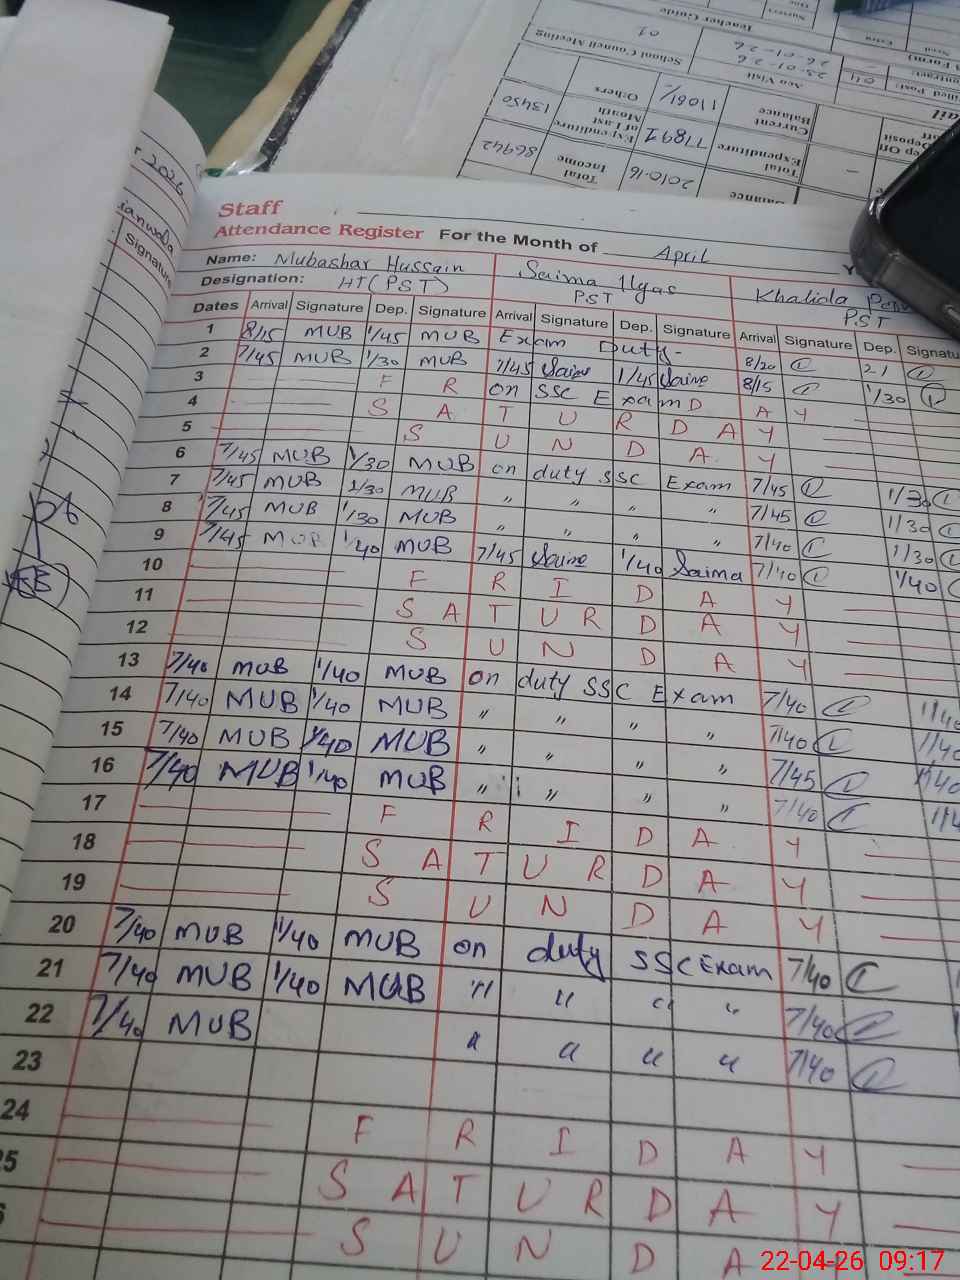 Staff
Attendance Register For the Month of April
Name: Mubashar Hussain Saima Ilyas Khalida
Designation: HT(PST) PST PST
Dates Arrival Signature Dep. Signature Arrival Signature Dep. Signature Arrival Signature Dep. Signatu
1 8/15 MUB 1/45 MUB Exam Duty- 8/20 21
2 7/45 MUB 1/30 MUB 7/45 Saima 1/45 Saima 8/15 1/30
3 F R on SSC Exam D A Y
4 S A T U R D A Y
5 S U N D A Y
6 7/45 MUB 1/30 MUB on duty SSC Exam 7/45 1/30
7 7/45 MUB 1/30 MUB " " " " 7/45 1/30
8 7/45 MUB 1/30 MUB " " " " 7/40 1/30
9 7/45 MUB 1/40 MUB 7/45 Saima 1/40 Saima 7/40 1/40
10 F R I D A Y
11 S A T U R D A Y
12 S U N D A Y
13 7/40 MUB 1/40 MUB on duty SSC Exam 7/40 1/40
14 7/40 MUB 1/40 MUB " " " " 7/40 1/40
15 7/40 MUB 1/40 MUB " " " " 7/45 1/40
16 7/40 MUB 1/40 MUB " " " " 7/40 1/4
17 F R I D A Y
18 S A T U R D A Y
19 S U N D A Y
20 7/40 MUB 1/40 MUB on duty SSC Exam 7/40
21 7/40 MUB 1/40 MUB " " " " 7/40
22 7/40 MUB " " " " 7/40
23
24 F R I D A Y
25 S A T U R D A Y
S U N D A
2026
Signature
Teacher Guide
School Council Meeting 01
Aeo Visit 23-01-26
26-01-26
Current Balance 11081/- Others 13450
Total Expenditure 77897 Expenditure of Last Month
2010-16 Total Income 86942
22-04-26 09:17